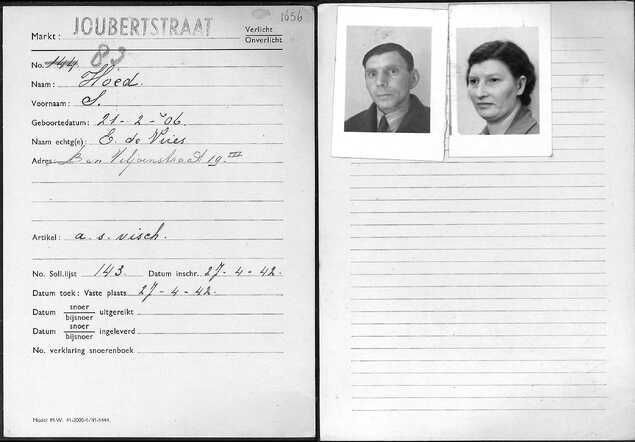 1656
Markt: JOUBERTSTRAAT Verlicht
Onverlicht
No. 144 83
Naam: Hoed.
Voornaam: S.
Geboortedatum: 21-2-'06
Naam echtg(e): E. de Vries
Adres Ben Viljoenstraat 19 III
Artikel: a. s. visch.
No. Soll.lijst 143. Datum inschr. 27-4-42.
Datum toek: Vaste plaats 27-4-42.
Datum snoer/bijsnoer uitgereikt
Datum snoer/bijsnoer ingeleverd
No. verklaring snoerenboek
Model M.W.